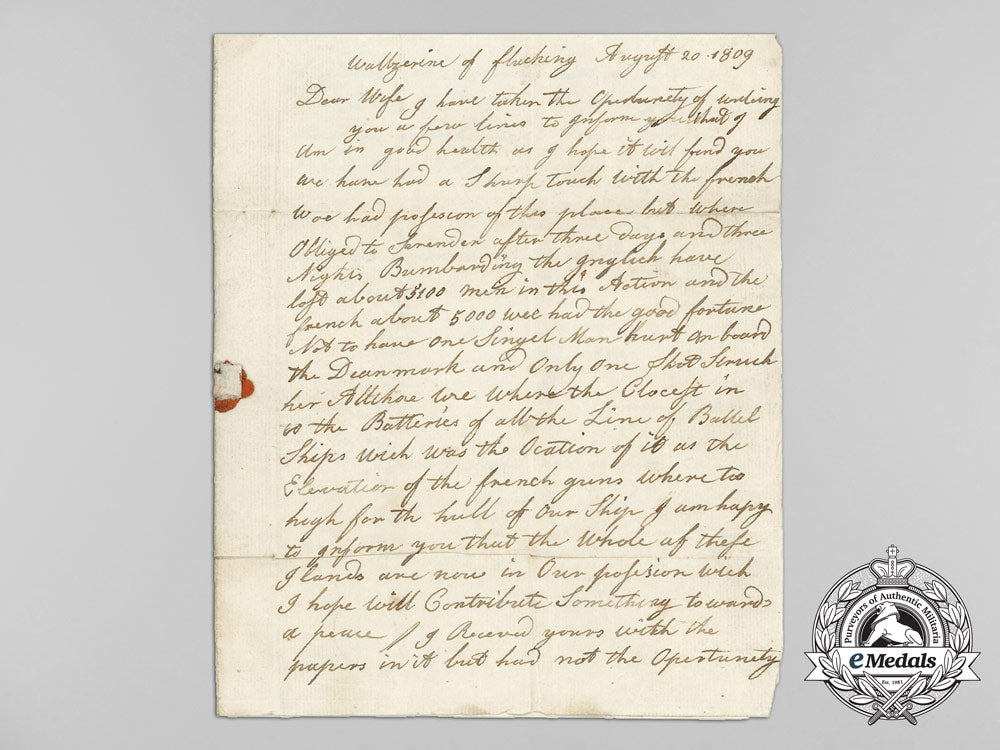 Wallzerine of fluching August 20 1809
Dear Wife I have taken the Opertunety of writing
you a few lines to Inform you that I
Am in good health as I hope it will find you
we have had a Sharp touch with the french
Woe had posescon of this place but where
Obliged to Serender after three days and three
Nights Bumbarding the Inglich have
lost about 5100 men in this Action and the
french about 5000 wee had the good fortune
Not to have one Singel Man hurt on board
the Deanmark and Only One Shot Struck
her Allthoe We Where the Clocest in
to the Batteries of all the Line of Battel
Ships wich was the Ocation of it as the
Elevation of the french guns where too
high for th hull of Our Ship I am hapy
to Inform you that the Whole of these
Ilands are now in Our posesion wich
I hope will Contribute Something towards
a peace / I Receved yours with the
papers in it but had not the Opertunity
Purveyors of Authentic Militaria
eMedals
Est. 1981